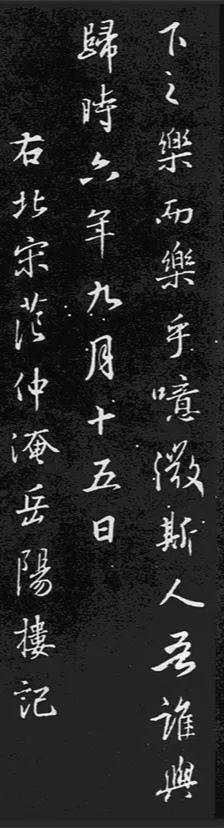 下之樂而樂乎噫微斯人吾誰與
歸時六年九月十五日
右北宋范仲淹岳陽樓記